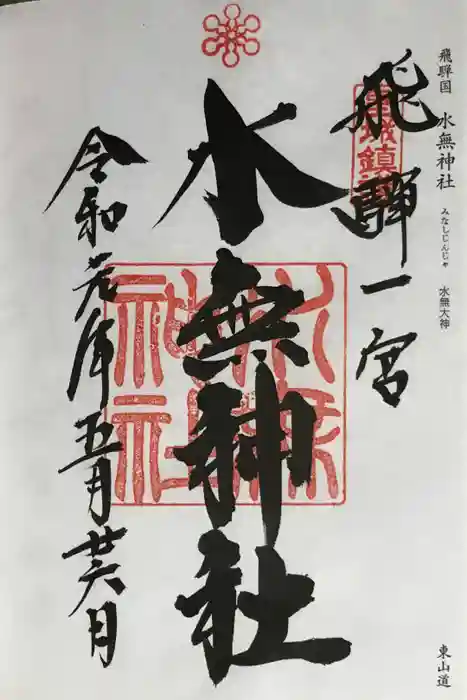 飛騨国 水無神社 みなしじんじゃ 水無大神
東山道
飛騨一宮
城鎮
水無神社
水無神社
令和元年五月廿六日